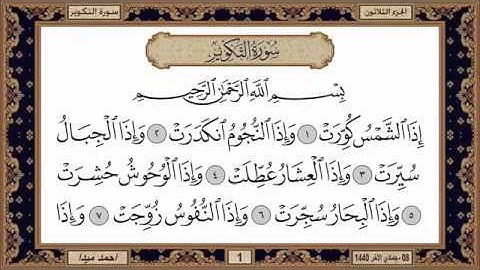 سورة التكوير
الجزء الثلاثون
سُورَةُ التَّكْوِيرِ
بِسْمِ ٱللَّهِ ٱلرَّحْمَٰنِ ٱلرَّحِيمِ
إِذَا ٱلشَّمْسُ كُوِّرَتْ ١ وَإِذَا ٱلنُّجُومُ ٱنكَدَرَتْ ٢ وَإِذَا ٱلْجِبَالُ
سُيِّرَتْ ٣ وَإِذَا ٱلْعِشَارُ عُطِّلَتْ ٤ وَإِذَا ٱلْوُحُوشُ حُشِرَتْ
٥ وَإِذَا ٱلْبِحَارُ سُجِّرَتْ ٦ وَإِذَا ٱلنُّفُوسُ زُوِّجَتْ ٧ وَإِذَا
08 -جمادي الآخر 1440
1
/احمد ميد/